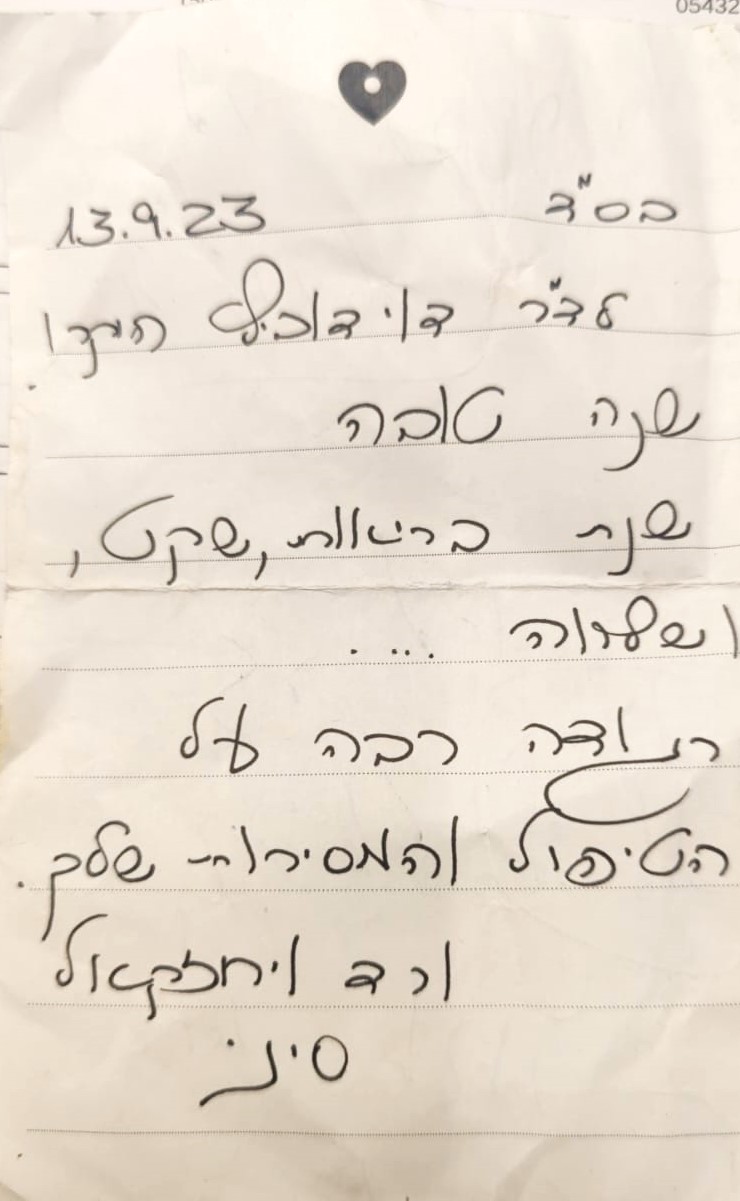 05432
בס"ד 13.9.23
לד"ר דוידוביץ היקר
שנה טובה
שנת בריאות, שקט,
ושלווה ....
תודה רבה על
הטיפול והמסירות שלך.
ורד ויחזקאל
סיני